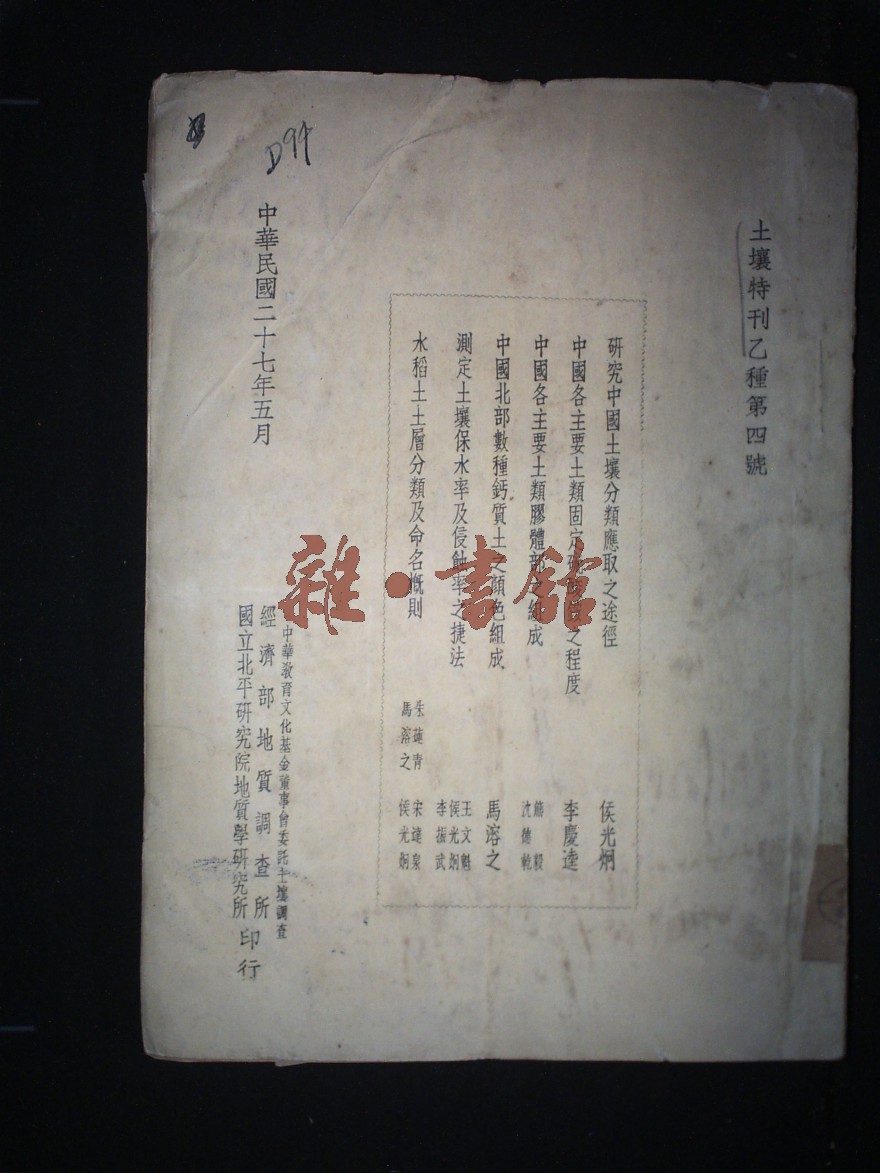 土壤特刊乙種第四號
研究中國土壤分類應取之途徑 侯光炯
中國各主要土類固定 之程度 李慶逵
中國各主要土類膠體部之組成 熊毅 沈德乾
中國北部數種鈣質土之顏色組成 馬溶之
測定土壤保水率及侵蝕率之捷法 王文魁 侯光炯 李振武
水稻土土層分類及命名概則 朱蓮青 馬溶之 宋達泉 侯光炯
中華教育文化基金董事會委託土壤調查
經濟部地質調查所
國立北平研究院地質學研究所
印行
中華民國二十七年五月
D94
雜·書館